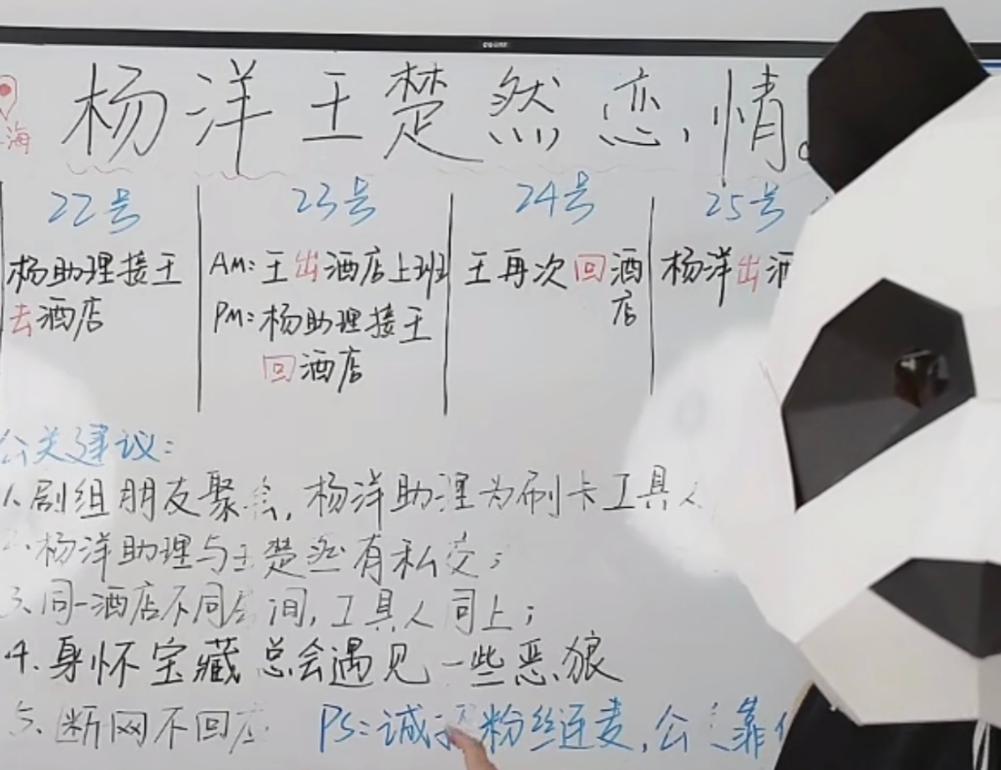 海
杨洋王楚然恋情。
22号 23号 24号 25号
杨助理接王
去酒店
AM:王出酒店上班
PM:杨助理接王
回酒店
王再次回酒
店
杨洋出酒
公关建议:
1.剧组朋友聚会,杨洋助理为刷卡工具人
2.杨洋助理与王楚然有私交;
3、同一酒店不同房间,工具人同上;
4.身怀宝藏总会遇见一些恶狼
5、断网不回应
PS:诚 粉丝连麦,公 靠